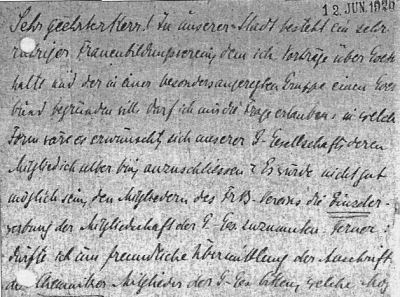 12 JUN. 1929
Sehr geehrter Herr! In unserer Stadt besteht ein sehr
rühriger Frauenbildungsverein, dem ich Vorträge über Goethe
halte und der in einer besonders angeregten Gruppe einen
bund begründen will. Darf ich mir die Frage erlauben, in welcher
Form wäre es erwünscht, sich unserer G-Gesellschaft, deren
Mitglied ich selber bin, anzuschliessen? Es würde nicht gut
möglich sein, den Mitgliedern des FrB-Vereins die Einzeler-
werbung der Mitgliedschaft der G-Ges. zuzumuten. Ferner:
dürfte ich um freundliche Übermittlung der Anschrift
der Chemnitzer Mitglieder der G-Ges. bitten, welche